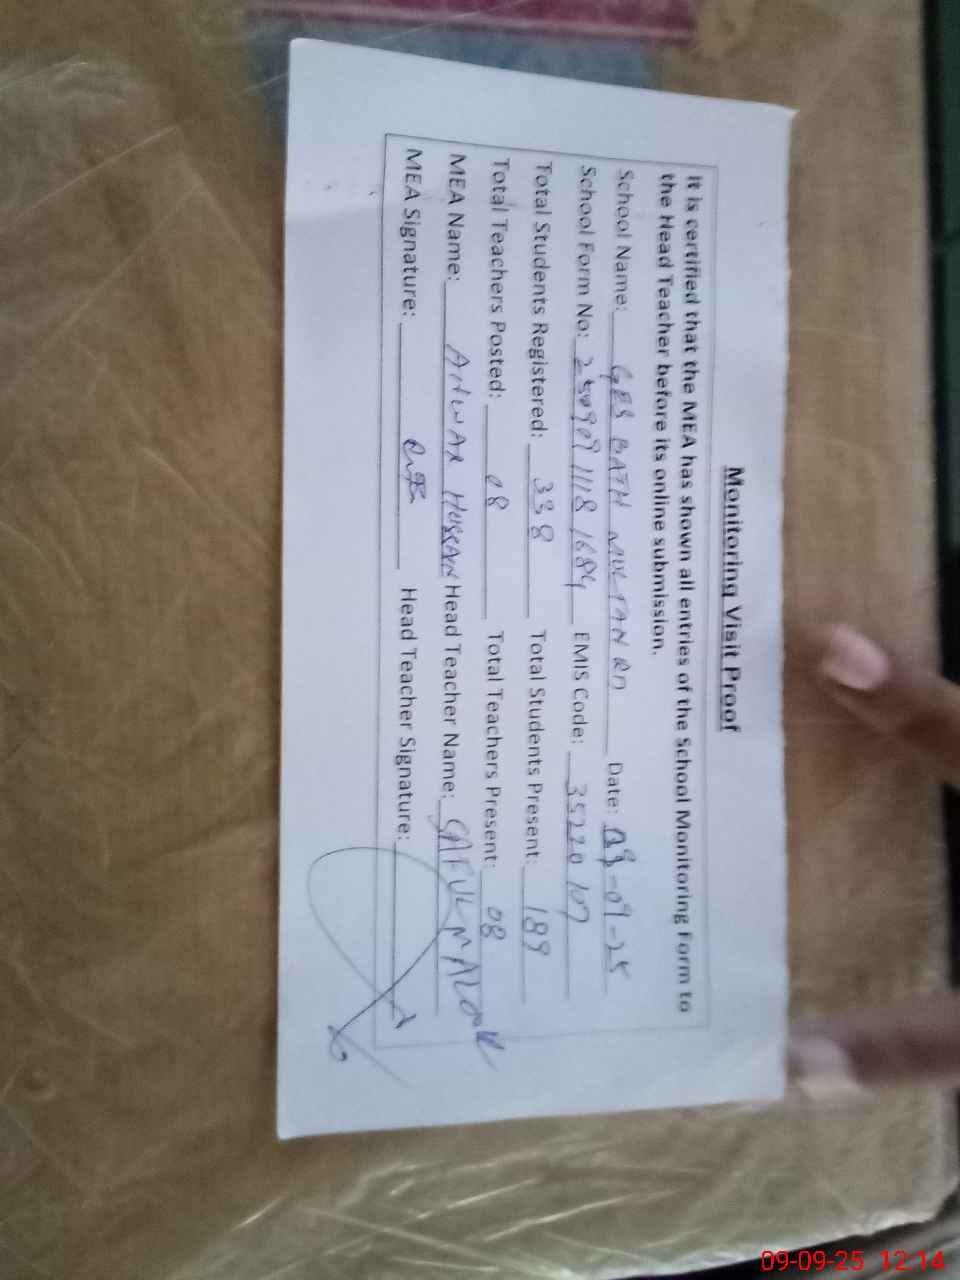 Monitoring Visit Proof
It is certified that the MEA has shown all entries of the School Monitoring Form to
the Head Teacher before its online submission.
School Name: GES BATH MULTAN RD Date: 09-09-25
School Form No: 250909 1118 1684 EMIS Code: 35220107
Total Students Registered: 338 Total Students Present: 189
Total Teachers Posted: 08 Total Teachers Present: 08
MEA Name: ANWAR HUSSAN Head Teacher Name: SAFUL MALOOK
MEA Signature: Head Teacher Signature:
09-09-25 12:14